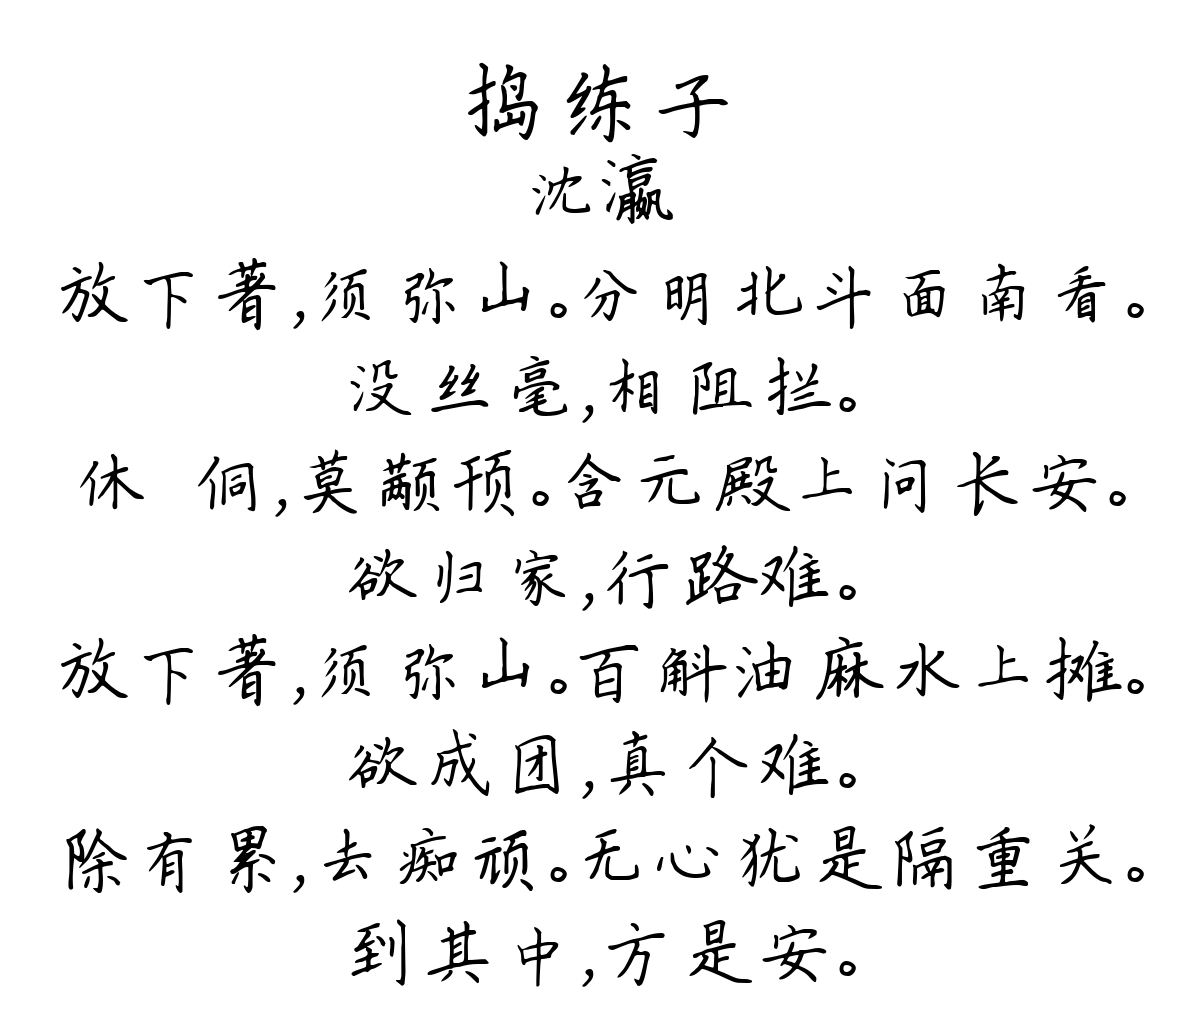 捣练子
沈瀛
放下著,须弥山。分明北斗面南看。
没丝毫,相阻拦。
休 侗,莫颟顸。含元殿上问长安。
欲归家,行路难。
放下著,须弥山。百斛油麻水上摊。
欲成团,真个难。
除有累,去痴顽。无心犹是隔重关。
到其中,方是安。